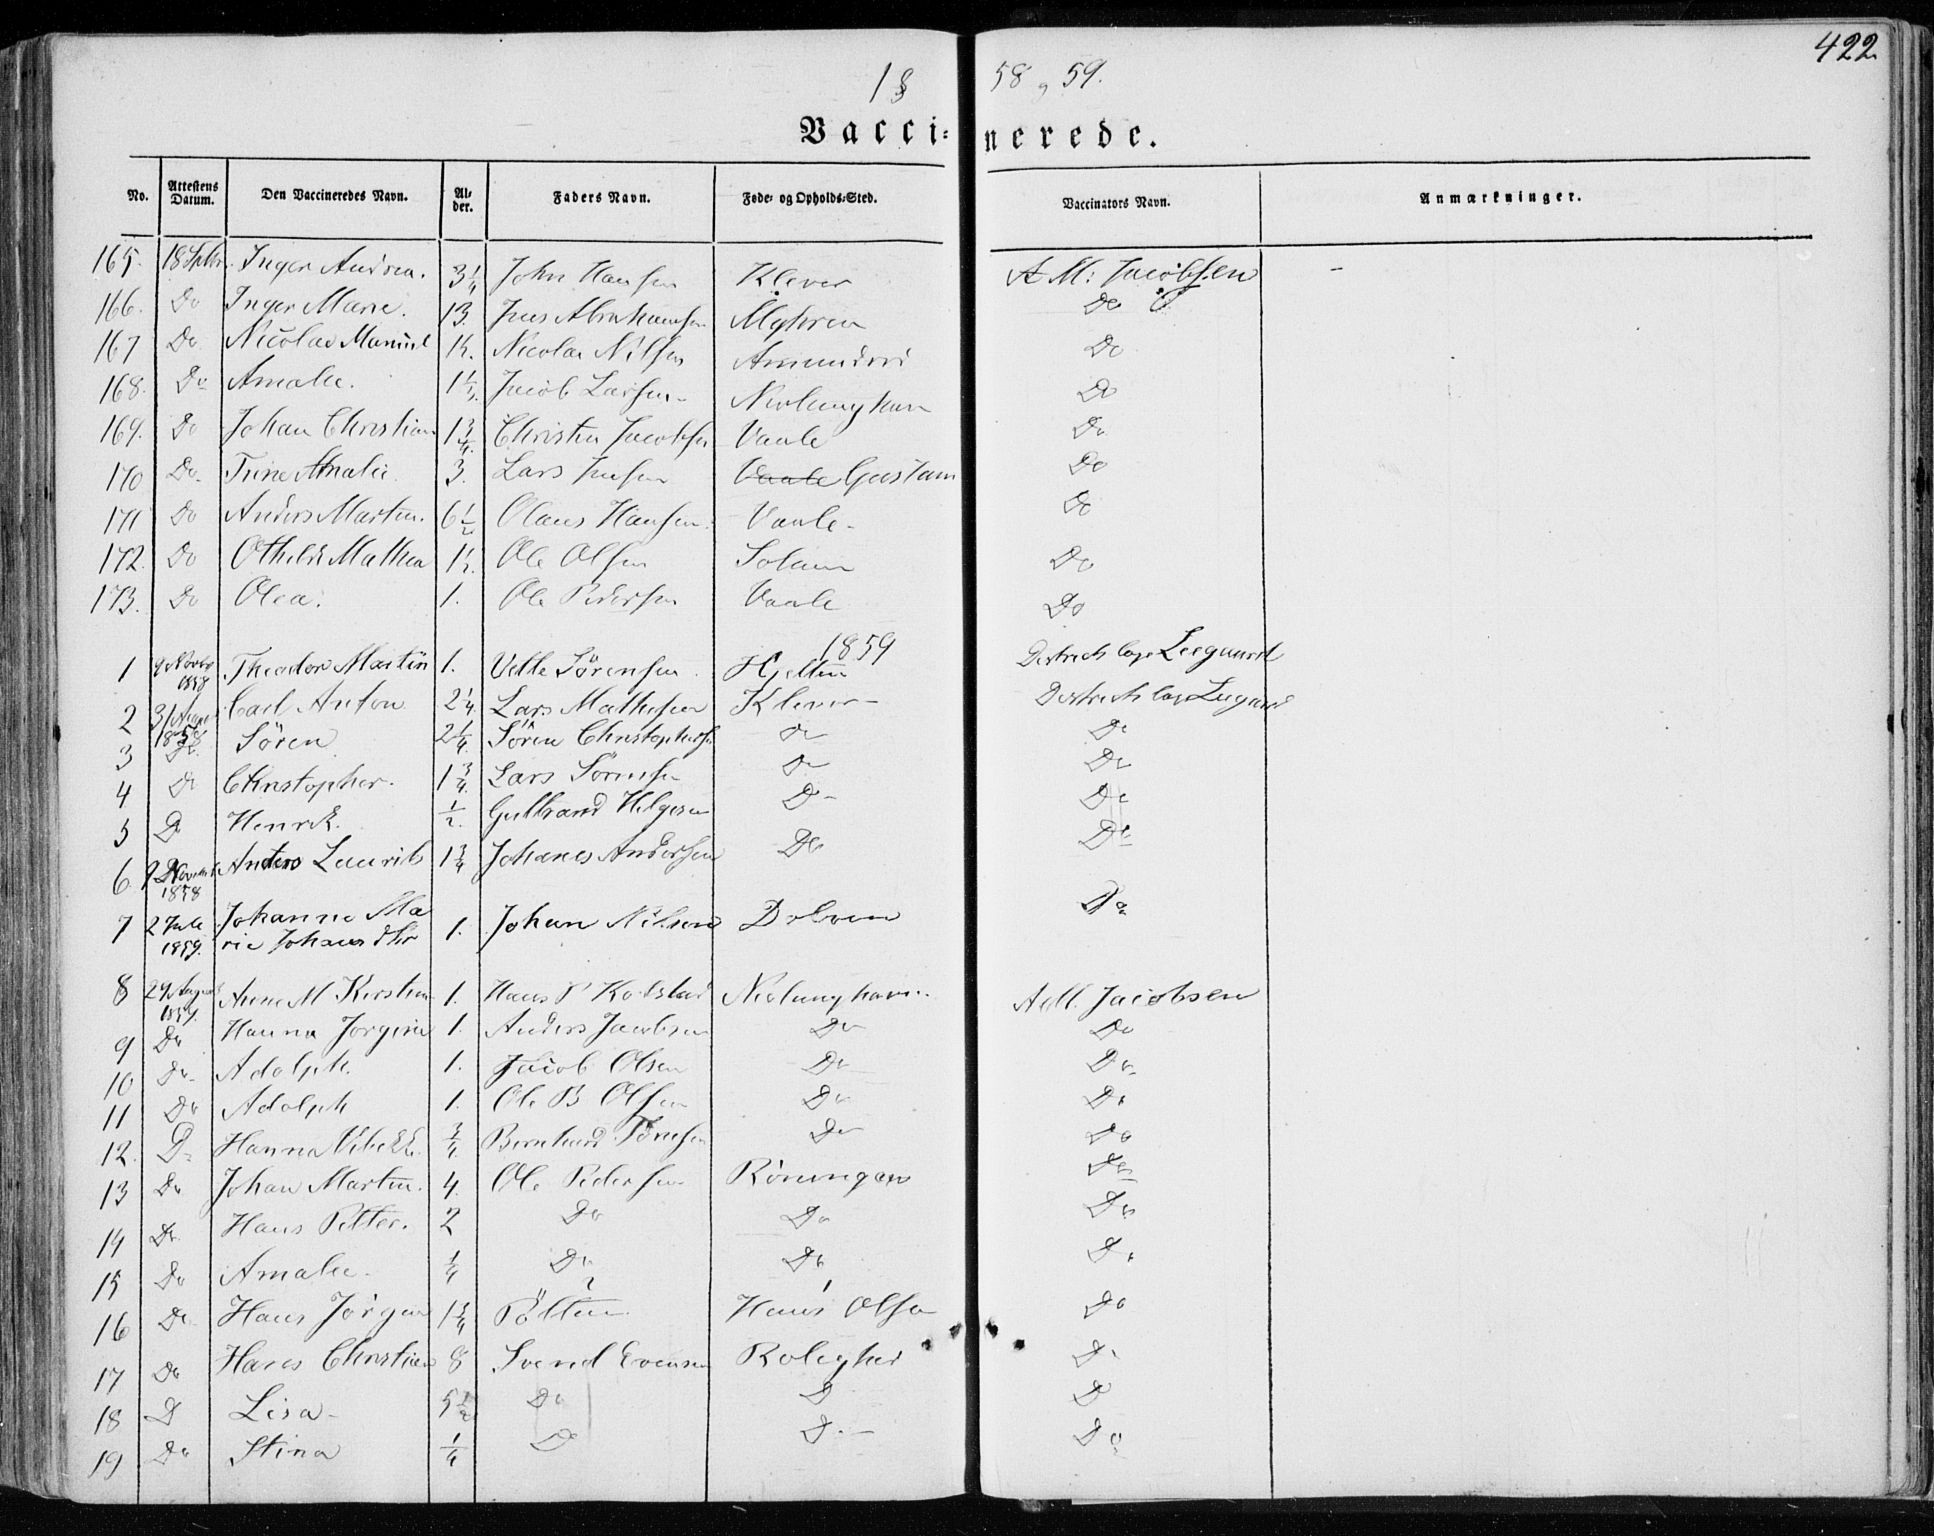 422
18 58 og 59.
Vaccinerede.
No. Attestens Datum. Den Vaccineredes Navn. Alder. Faders Navn. Føde- og Opholds-Sted. Vaccinators Navn. Anmærkninger.
165. 18 Sptbr. Inger Andrea. 3 1/4 John Hansen Klever A M: Jacobsen -
166. Do Inger Marie. 13. Jens Abrahamsen Myhren Do
167 Do Nicolai 1/2. Nicolai Nilsen Amundrød Do
168. Do Amalie. 1 1/2. Jacob Larsen Nevlunghavn Do
169. Do Johan Christian 1 3/4. Christen Jacobsen Vaale Do
170 Do. Trine Amalie. 3. Lars Jensen Vaale Gustam Do
171 Do Anders Martin. 6 1/2 Olaus Hansen. Vaale - Do
172. Do Othilde Mathea 1/2. Ole Olsen Solum Do
173. Do Olea. 1. Ole Pedersen Vaale Do
1859
1 Novbr 1858 Theodor Martin 1. Vetle Sörensen Hjelten District Læge Leegaard
2 31 August 1858 Carl Anton 2 1/4. Lars Mathisen Klever - District Læge Leegaard
3 Do. Sören 2 1/4. Sören Christophersen do Do
4 Do Christopher. 1 3/4. Lars Sörensen do Do
5 Do Henrik. 1/2. Gulbrand Helgesen Do Do
6. November 1858 Anders Laurits 1 3/4 Johanes Andersen Do Do
7 2 Juli 1859. Johanne Ma
rie Johansdtr 1. Johan Nilsen Dolven Do
8 29 August 1859. Anne M Kirstine 1. Hans P Kolstad Nevlunghavn. A M. Jacobsen
9 Do Hanna Jorgine 1. Anders Jacobsen Do Do
10 Do. Adolph. 1. Jacob Olsen Do Do.
11 Do Adolph 1. Ole B Olsen Do Do
12. Do Hanna Vibekke. 3/4 Bernhard Do Do
13 Do Johan Martin. 4. Ole Pedersen Röningen Do
14 Do Hans Petter. 2 Do Do Do
15 Do Amalie. 1/4 Do Do Do
16 Do Hans Jörgen 1 3/4 Pölten Hans Olsen Do
17 Do Hans Christian 8 Svend Evensen Rolighed Do
18 Do Lisa - 5 1/2 Do Do Do
19 Do Stina 1/4 Do Do - Do